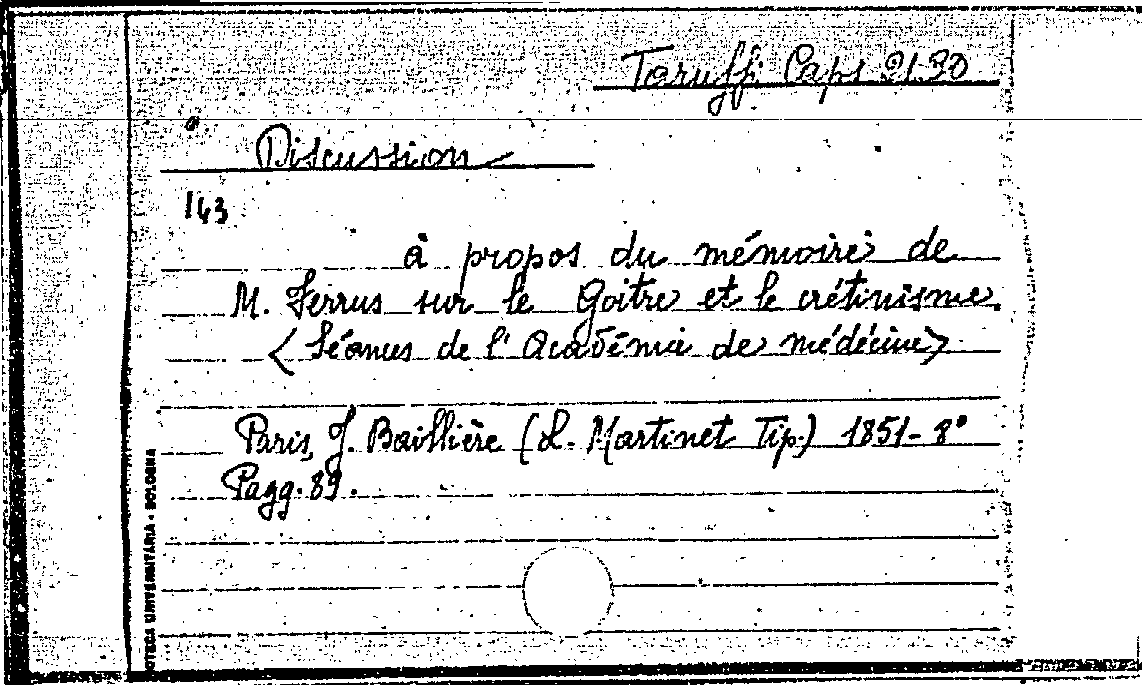 Taruffi Caps 2130
Discussion
143
à propos du mémoire de
M. Ferrus sur le Goitre et le crétinisme.
<Séances de l'Académie de médécine>
Paris, J. Baillière (L. Martinet Tip.) 1851-8°
Pagg. 89.
OTECA UNIVERSITARIA - BOLOGNA